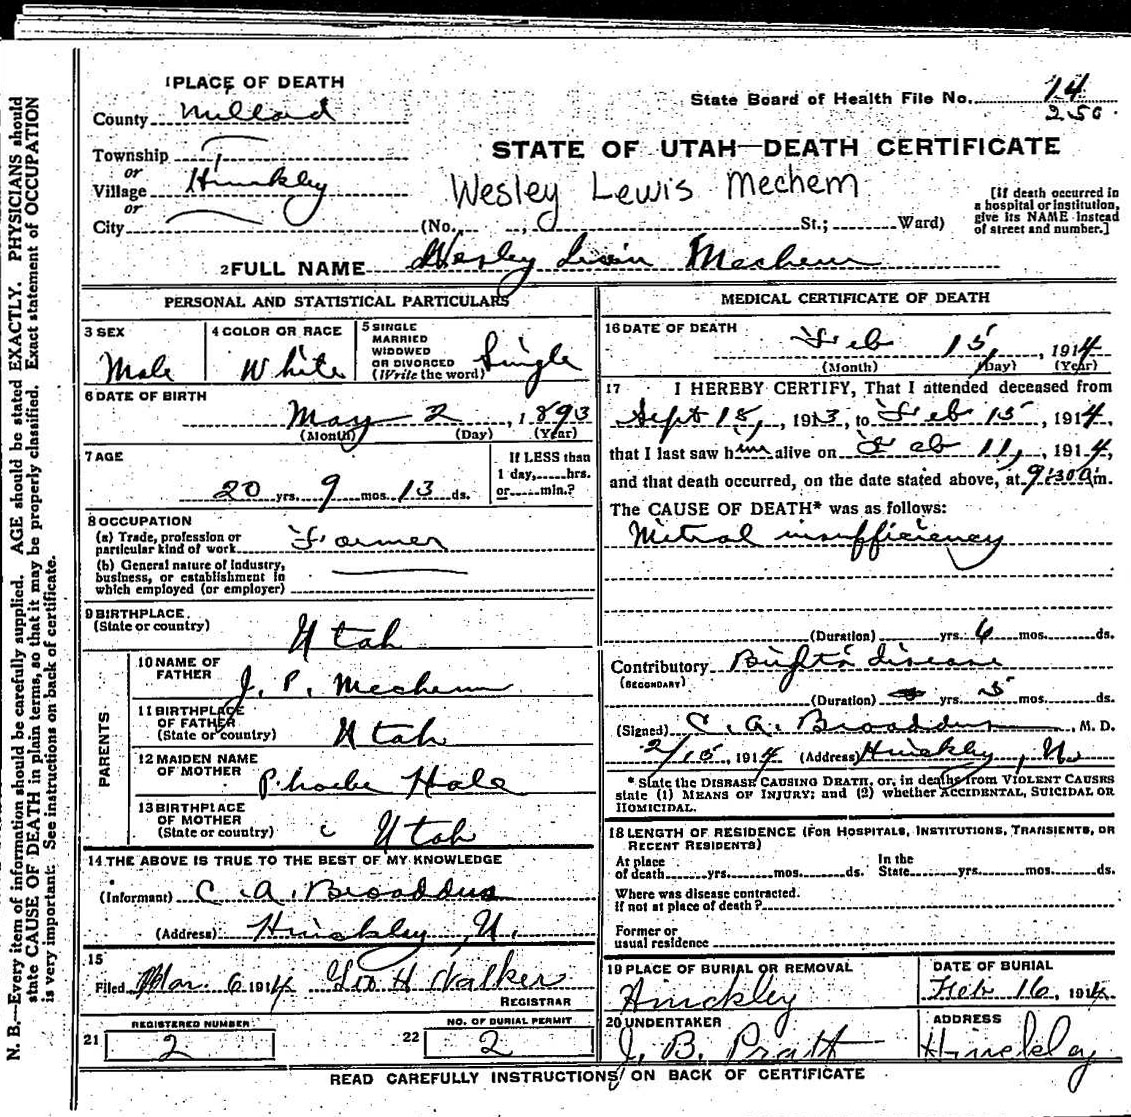 1 PLACE OF DEATH
County Millard
State Board of Health File No. 14
250
Township
or
Village Hinckley
or
City
STATE OF UTAH—DEATH CERTIFICATE
Wesley Lewis Mechem
(No. , St.; Ward)
[If death occurred in
a hospital or institution,
give its NAME instead
of street and number.]
2 FULL NAME Wesley Mechem
PERSONAL AND STATISTICAL PARTICULARS
3 SEX
Male
4 COLOR OR RACE
White
5 SINGLE
MARRIED
WIDOWED
OR DIVORCED
(Write the word) Single
6 DATE OF BIRTH
May 2, 1893
(Month) (Day) (Year)
7 AGE
20 yrs. 9 mos. 13 ds.
If LESS than
1 day, hrs.
or min.?
8 OCCUPATION
(a) Trade, profession or
particular kind of work Farmer
(b) General nature of industry,
business, or establishment in
which employed (or employer)
9 BIRTHPLACE
(State or country)
Utah
PARENTS
10 NAME OF
FATHER
J. P. Mechem
11 BIRTHPLACE
OF FATHER
(State or country)
Utah
12 MAIDEN NAME
OF MOTHER
Phoebe Hale
13 BIRTHPLACE
OF MOTHER
(State or country)
Utah
14 THE ABOVE IS TRUE TO THE BEST OF MY KNOWLEDGE
(Informant) C. A. Broaddus
(Address) Hinckley, U.
15
Filed Mar. 6 1914 Geo H Walker
REGISTRAR
REGISTERED NUMBER
21 2
NO. OF BURIAL PERMIT
22 2
MEDICAL CERTIFICATE OF DEATH
16 DATE OF DEATH
Feb 15, 1914
(Month) (Day) (Year)
17 I HEREBY CERTIFY, That I attended deceased from
Sept 18, 1913, to Feb 15, 1914,
that I last saw him alive on Feb 11, 1914,
and that death occurred, on the date stated above, at 9:30 a m.
The CAUSE OF DEATH* was as follows:
Mitral insufficiency
(Duration) yrs. 6 mos. ds.
Contributory Bright's disease
(SECONDARY)
(Duration) yrs. 5 mos. ds.
(Signed) C. A. Broaddus, M. D.
2/15, 1914 (Address) Hinckley, U.
* State the DISEASE CAUSING DEATH, or, in deaths from VIOLENT CAUSES
state (1) MEANS OF INJURY; and (2) whether ACCIDENTAL, SUICIDAL OR
HOMICIDAL.
18 LENGTH OF RESIDENCE (FOR HOSPITALS, INSTITUTIONS, TRANSIENTS, OR
RECENT RESIDENTS)
At place
of death yrs. mos. ds.
In the
State yrs. mos. ds.
Where was disease contracted.
If not at place of death?
Former or
usual residence
19 PLACE OF BURIAL OR REMOVAL
Hinckley
DATE OF BURIAL
Feb 16, 1914
20 UNDERTAKER
J. B. Pratt
ADDRESS
Hinckley
READ CAREFULLY INSTRUCTIONS ON BACK OF CERTIFICATE
N. B.—Every item of information should be carefully supplied. AGE should be stated EXACTLY. PHYSICIANS should
state CAUSE OF DEATH in plain terms, so that it may be properly classified. Exact statement of OCCUPATION
is very important. See instructions on back of certificate.